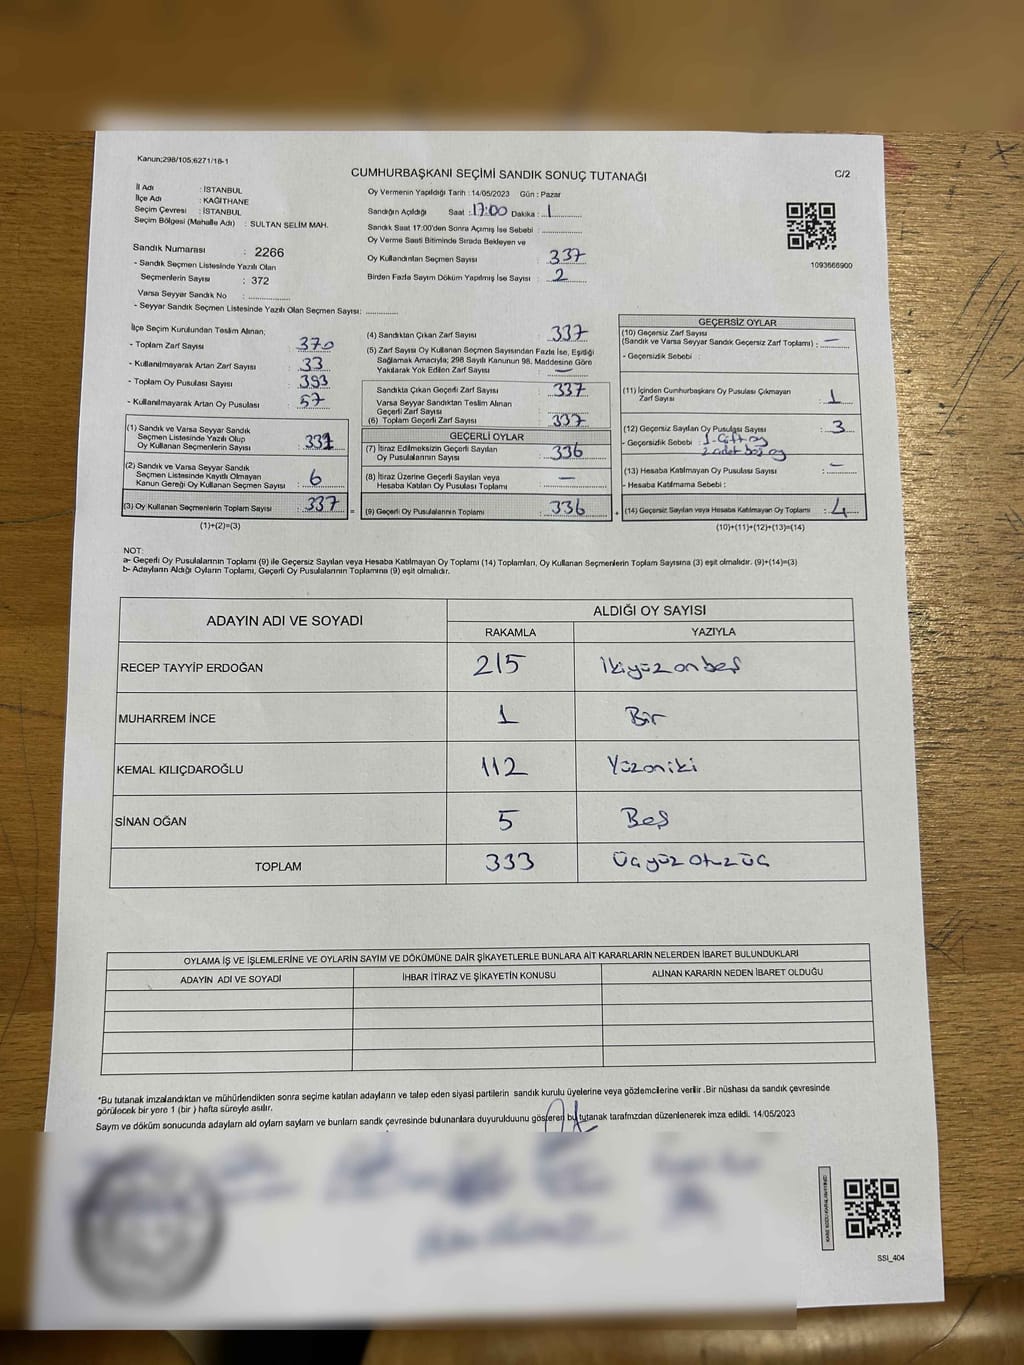 Kanun;298/105;6271/18-1
CUMHURBAŞKANI SEÇİMİ SANDIK SONUÇ TUTANAĞI
C/2
İl Adı : İSTANBUL
İlçe Adı : KAĞITHANE
Seçim Çevresi : İSTANBUL
Seçim Bölgesi (Mahalle Adı) : SULTAN SELİM MAH.
Sandık Numarası : 2266
- Sandık Seçmen Listesinde Yazılı Olan
Seçmenlerin Sayısı : 372
Varsa Seyyar Sandık No : ..............
- Seyyar Sandık Seçmen Listesinde Yazılı Olan Seçmen Sayısı: ............
Oy Vermenin Yapıldığı Tarih : 14/05/2023 Gün : Pazar
Sandığın Açıldığı Saat : 17:00 Dakika : 1
Sandık Saat 17:00'den Sonra Açımış İse Sebebi : ............
Oy Verme Saati Bitiminde Sırada Bekleyen ve
Oy Kullandırılan Seçmen Sayısı : 337
Birden Fazla Sayım Döküm Yapılmış İse Sayısı : 2
1093666900
İlçe Seçim Kurulundan Teslim Alınan;
- Toplam Zarf Sayısı : 370
- Kullanılmayarak Artan Zarf Sayısı : 33
- Toplam Oy Pusulası Sayısı : 393
- Kullanılmayarak Artan Oy Pusulası : 57
(1) Sandık ve Varsa Seyyar Sandık
Seçmen Listesinde Yazılı Olup
Oy Kullanan Seçmenlerin Sayısı :
(2) Sandık ve Varsa Seyyar Sandık
Seçmen Listesinde Kayıtlı Olmayan
Kanun Gereği Oy Kullanan Seçmen Sayısı : 6
(3) Oy Kullanan Seçmenlerin Toplam Sayısı : 337
(1)+(2)=(3)
(4) Sandıktan Çıkan Zarf Sayısı : 337
(5) Zarf Sayısı Oy Kullanan Seçmen Sayısından Fazla İse, Eşitliği
Sağlamak Amacıyla; 298 Sayılı Kanunun 98. Maddesine Göre
Yakılarak Yok Edilen Zarf Sayısı : —
Sandıkta Çıkan Geçerli Zarf Sayısı : 337
Varsa Seyyar Sandıktan Teslim Alınan
Geçerli Zarf Sayısı :
(6) Toplam Geçerli Zarf Sayısı : 337
GEÇERLİ OYLAR
(7) İtiraz Edilmeksizin Geçerli Sayılan
Oy Pusulalarının Sayısı : 336
(8) İtiraz Üzerine Geçerli Sayılan veya
Hesaba Katılan Oy Pusulası Toplamı : —
(9) Geçerli Oy Pusulalarının Toplamı : 336
GEÇERSİZ OYLAR
(10) Geçersiz Zarf Sayısı
(Sandık ve Varsa Seyyar Sandık Geçersiz Zarf Toplamı) : —
- Geçersizlik Sebebi :
(11) İçinden Cumhurbaşkanı Oy Pusulası Çıkmayan
Zarf Sayısı : 1
(12) Geçersiz Sayılan Oy Pusulası Sayısı : 3
- Geçersizlik Sebebi : 1. Çift oy
2 adet boş oy
(13) Hesaba Katılmayan Oy Pusulası Sayısı : —
- Hesaba Katılmama Sebebi :
(14) Geçersiz Sayılan veya Hesaba Katılmayan Oy Toplamı : 4
(10)+(11)+(12)+(13)=(14)
NOT:
a- Geçerli Oy Pusulalarının Toplamı (9) ile Geçersiz Sayılan veya Hesaba Katılmayan Oy Toplamı (14) Toplamları, Oy Kullanan Seçmenlerin Toplam Sayısına (3) eşit olmalıdır. (9)+(14)=(3)
b- Adayların Aldığı Oyların Toplamı, Geçerli Oy Pusulalarının Toplamına (9) eşit olmalıdır.
ADAYIN ADI VE SOYADI
ALDIĞI OY SAYISI
RAKAMLA YAZIYLA
RECEP TAYYİP ERDOĞAN 215 İkiyüz onbeş
MUHARREM İNCE 1 Bir
KEMAL KILIÇDAROĞLU 112 Yüzoniki
SİNAN OĞAN 5 Beş
TOPLAM 333 Üçyüz otuzüç
OYLAMA İŞ VE İŞLEMLERİNE VE OYLARIN SAYIM VE DÖKÜMÜNE DAİR ŞİKAYETLERLE BUNLARA AİT KARARLARIN NELERDEN İBARET BULUNDUKLARI
ADAYIN ADI VE SOYADI İHBAR İTİRAZ VE ŞİKAYETİN KONUSU ALINAN KARARIN NEDEN İBARET OLDUĞU
*Bu tutanak imzalandıktan ve mühürlendikten sonra seçime katılan adayların ve talep eden siyasi partilerin sandık kurulu üyelerine veya gözlemcilerine verilir .Bir nüshası da sandık çevresinde
görülecek bir yere 1 (bir ) hafta süreyle asılır.
Sayım ve döküm sonucunda adayların ald oylarn saylarn ve bunlarn sandık çevresinde bulunanlara duyurulduunu gösteren bu tutanak tarafmzdan düzenlenerek imza edildi. 14/05/2023
SSI_404